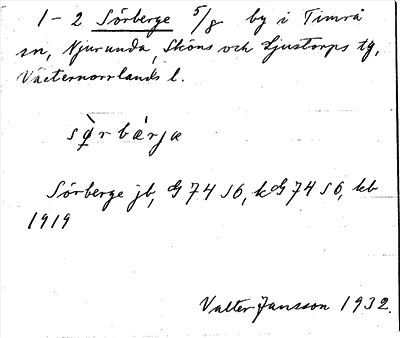 1-2 Sörberge 5/8 by i Timrå
sn, Njurunda, Sköns och Ljustorps tg,
Västernorrlands l.
sǫ̀rbærja
Sörberge jb, G 74 S6, kG 74 S6, kb
1919
Valter Jansson 1932.